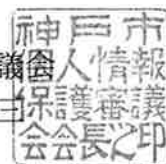 神戸市
議会
個人情報
保護審議
会会長之印